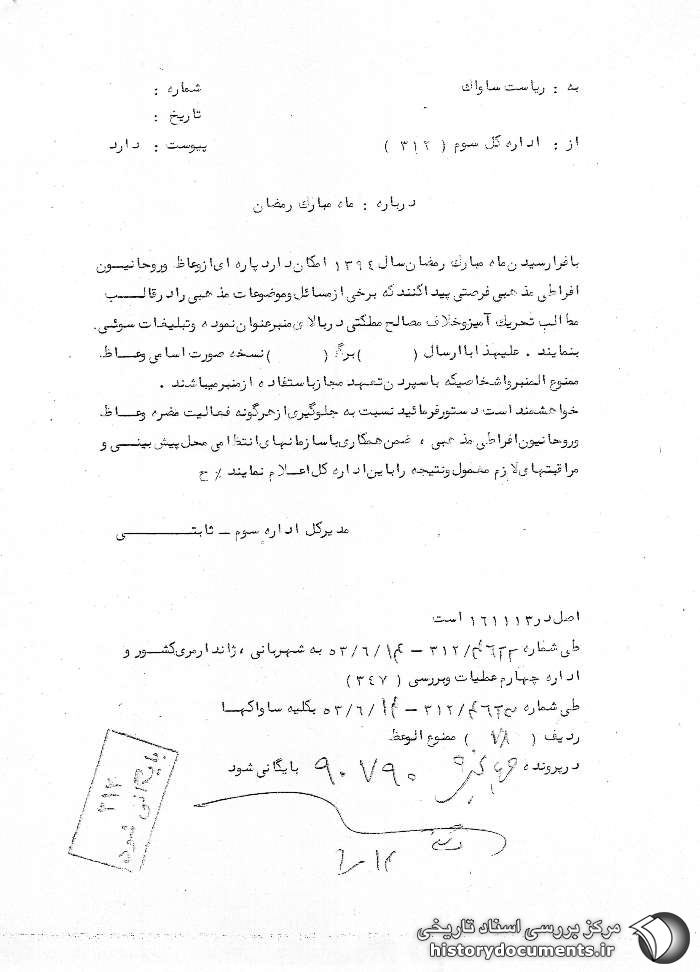 به : ریاست ساواک
شماره :
تاریخ :
از : اداره کل سوم ( ۳۱۲ )
پیوست : دارد
درباره : ماه مبارک رمضان
بافرارسیدن ماه مبارک رمضان سال ۱۳۹٤ امکان دارد پاره ای ازوعاظ وروحانیون
افراطی مذهبی فرصتی پیداکنند که برخی ازمسائل وموضوعات مذهبی رادرقالب
مطالب تحریک آمیزوخلاف مصالح مملکتی دربالای منبرعنوان نموده وتبلیغات سوئی
بنمایند . علیهذا باارسال ( ) برگ ( ) نسخه صورت اسامی وعاظ
ممنوع المنبرواشخاصیکه باسپردن تعهد مجازباستفاده ازمنبرمیباشند .
خواهشمند است دستورفرمائید نسبت به جلوگیری ازهرگونه فعالیت مضره وعاظ
وروحانیون افراطی مذهبی ، ضمن همکاری باسازمانهای انتظامی محل پیش بینی و
مراقبتهای لازم معمول ونتیجه راباین اداره کل اعلام نمایند ٪ ح
مدیرکل اداره سوم - ثابتی
اصل در ۱۶۱۱۱۳ است
طی شماره ۳۱۲/ - ۵۳/۶/ به شهربانی ، ژاندارمری کشور و
اداره چهارم عملیات وبررسی ( ۳٤۷ )
طی شماره ۳۱۲/ - ۵۳/۶/ بکلیه ساواکها
ردیف ( ۷۸ ) ممنوع الوعظ
درپرونده ۹۰۷۹۰ بایگانی شود
بایگانی شود
۳۱۲
مرکز بررسی اسناد تاریخی
historydocuments.ir